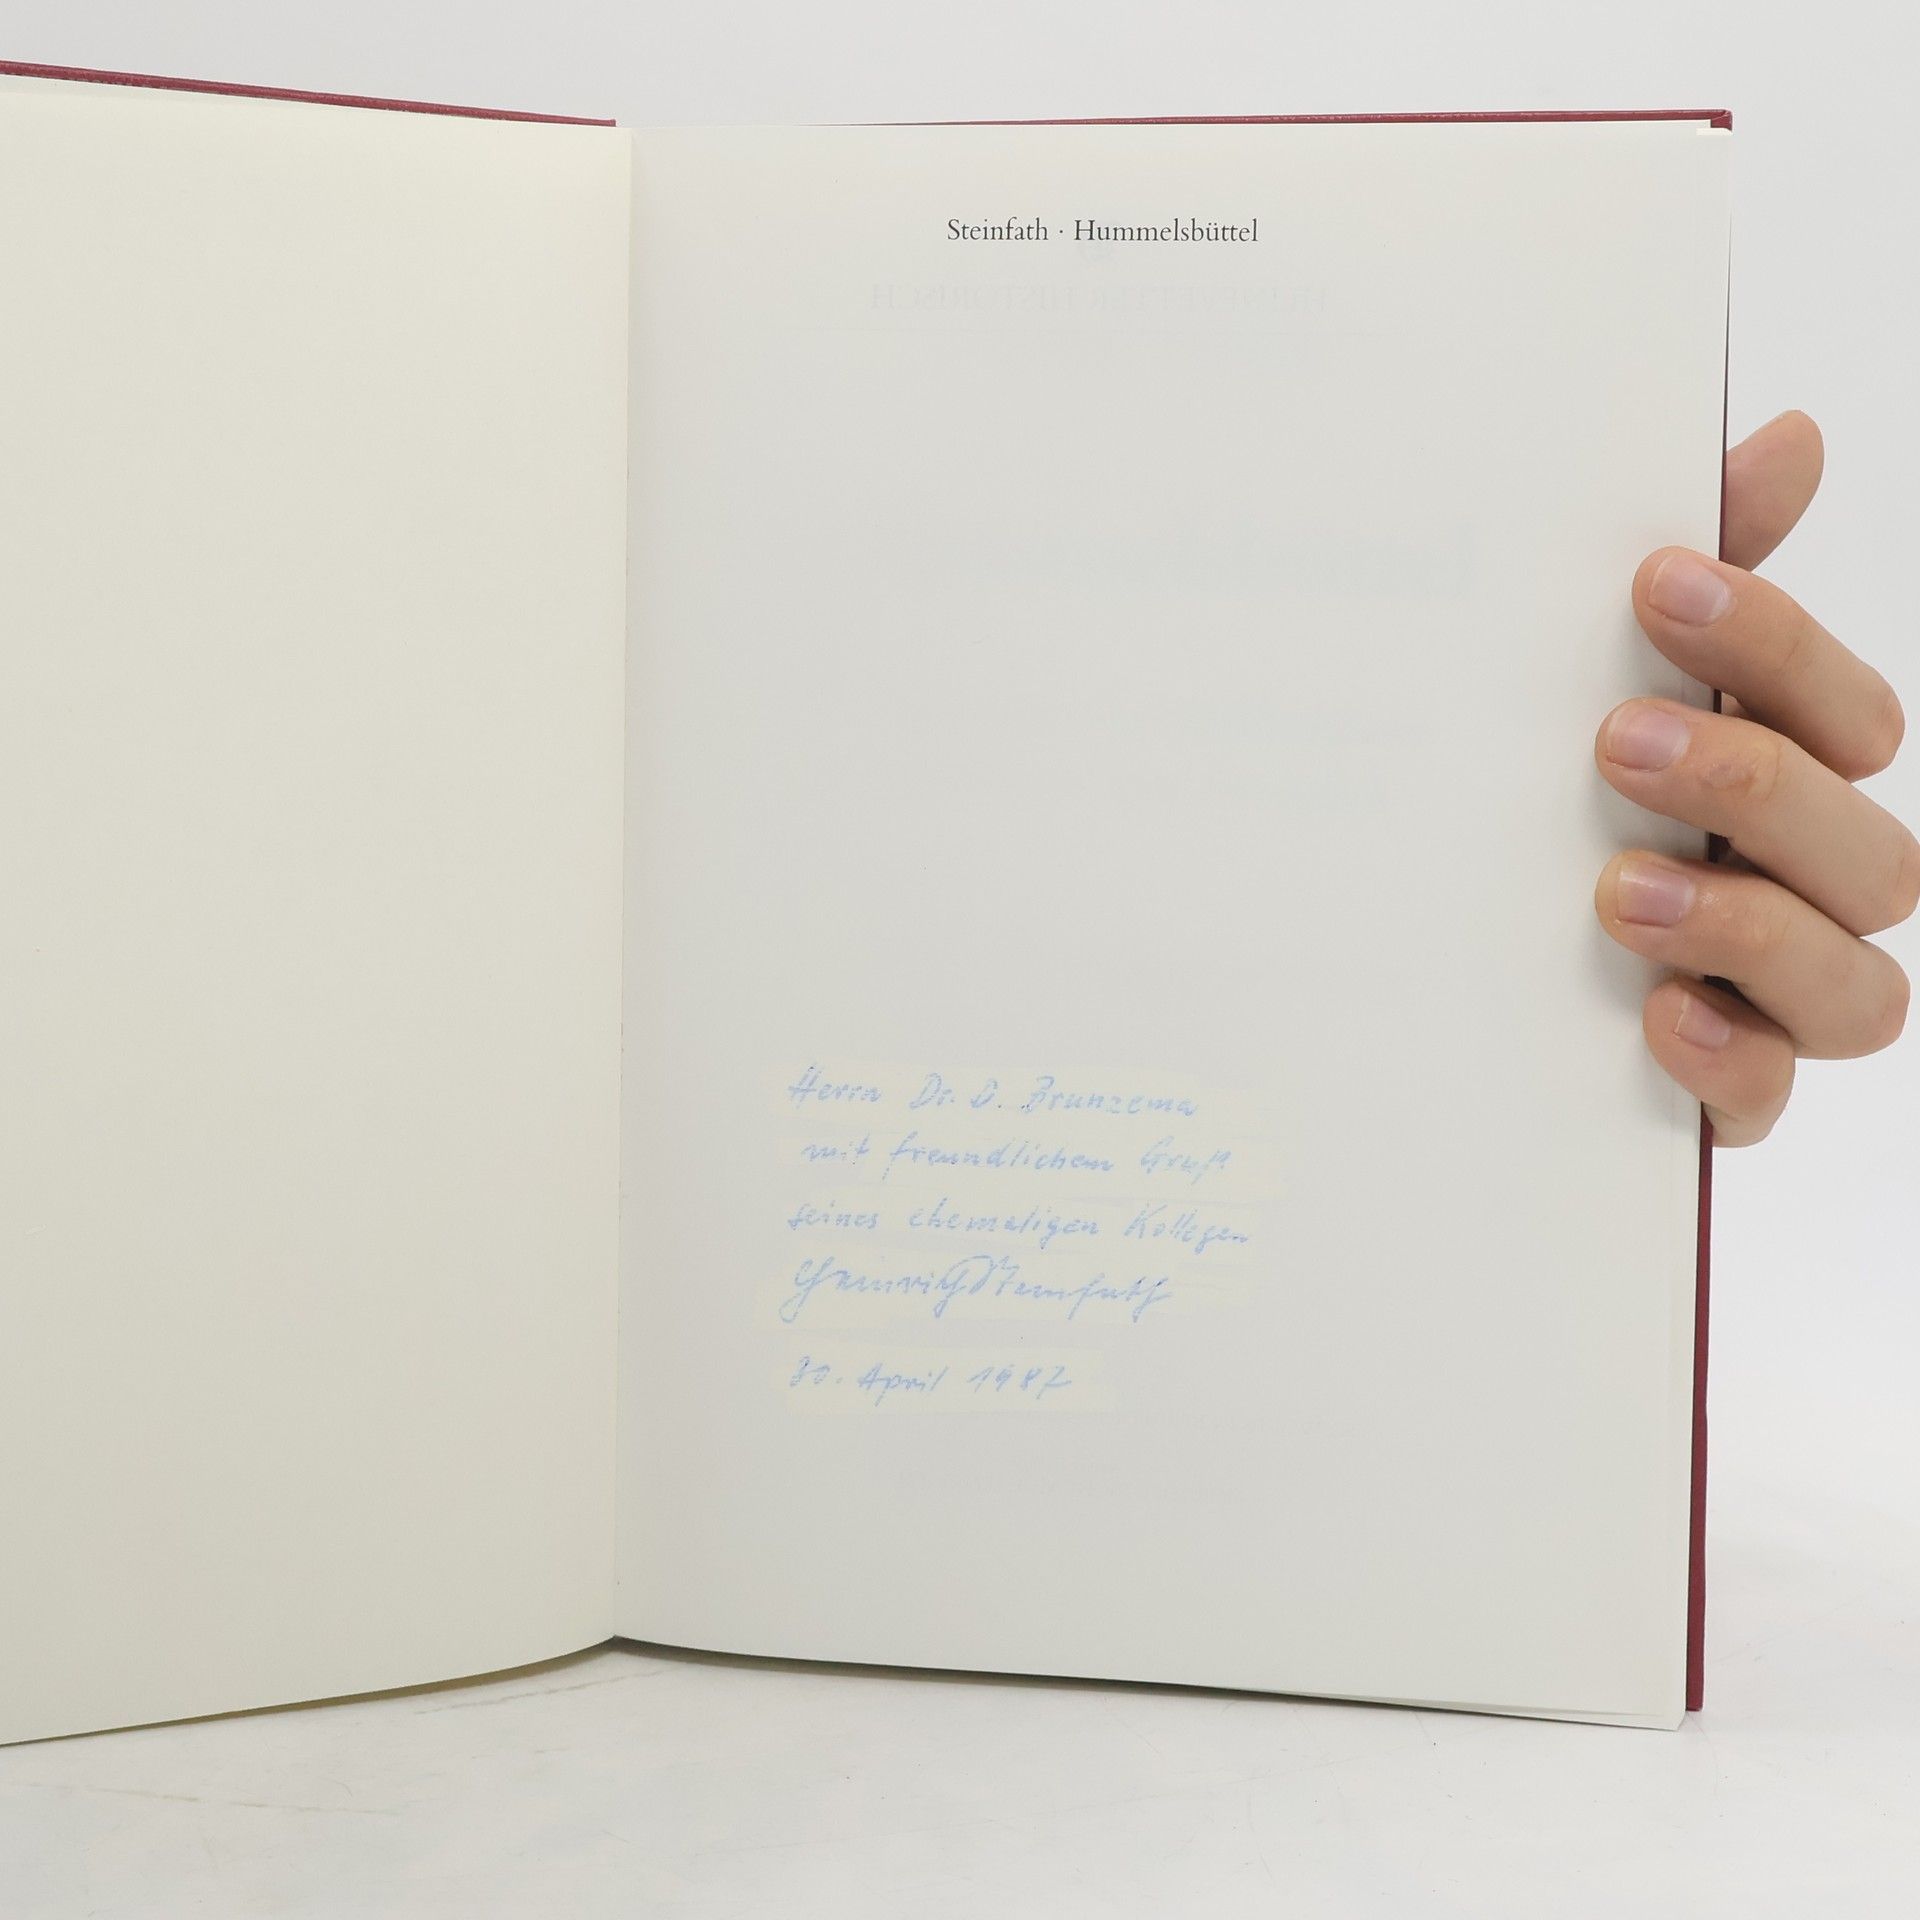 Steinfath · Hummelsbüttel
Herrn Dr. D. Brunzema
mit freundlichem Gruß
seines ehemaligen Kollegen
Heinrich Steinfath
30. April 1987